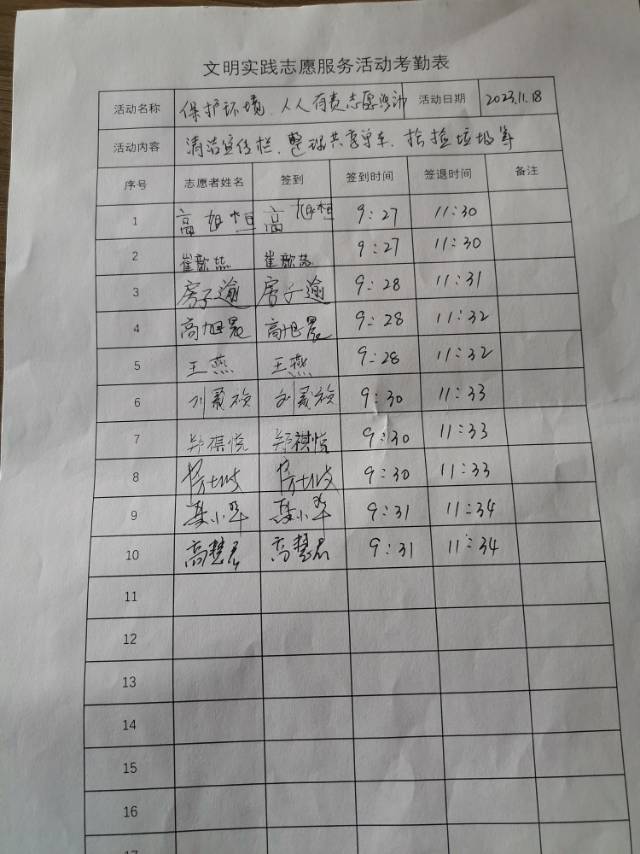 文明实践志愿服务活动考勤表
活动名称 保护环境、人人有责志愿活动 活动日期 2023.11.18
活动内容 清洁宣传栏、整理共享单车、捡拾垃圾等
序号 志愿者姓名 签到 签到时间 签退时间 备注
1 高旭恒 高旭恒 9:27 11:30
2 崔歌燕 崔歌燕 9:27 11:30
3 房子逾 房子逾 9:28 11:31
4 高旭晨 高旭晨 9:28 11:32
5 王燕 王燕 9:28 11:32
6 刘 刘 9:30 11:33
7 郑祺悦 郑祺悦 9:30 11:33
8 9:30 11:33
9 聂小华 聂小华 9:31 11:34
10 高慧君 高慧君 9:31 11:34
11
12
13
14
15
16
17